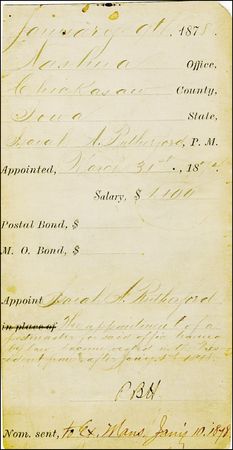 January 9th, 1878.
Nashua Office,
Chickasaw County,
Iowa State,
Isaiah A. Rutherford, P. M.
Appointed, 31st, 18
Salary, $ 1100
Postal Bond, $
M. O. Bond, $
Appoint Isaiah A. Rutherford
in place of The appointment of a
postmaster for said office having
by law become vested in the Pres-
ident from & after Jany
RBH
Nom. sent, to Ex. Mans. Jan'y 10. 1878.